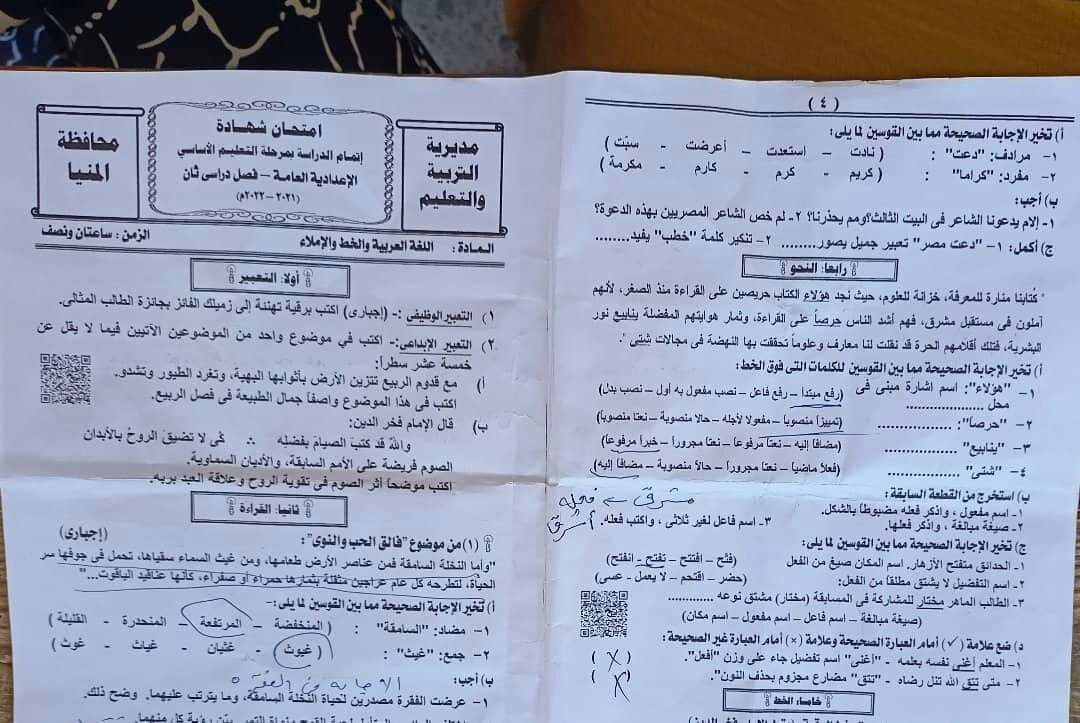 محافظة
المنيا
امتحان شهادة
إتمام الدراسة بمرحلة التعليم الأساسي
الإعدادية العامة - فصل دراسى ثان
(٢٠٢١ - ٢٠٢٢م)
مديرية
التربية
والتعليم
المادة : اللغة العربية والخط والإملاء
الزمن : ساعتان ونصف
أولا: التعبير
١) التعبير الوظيفى :- (إجبارى) اكتب برقية تهنئة إلى زميلك الفائز بجائزة الطالب المثالى.
٢) التعبير الإبداعى:- اكتب في موضوع واحد من الموضوعين الآتيين فيما لا يقل عن
خمسة عشر سطراً:
أ) مع قدوم الربيع تتزين الأرض بأثوابها البهية، وتغرد الطيور وتشدو.
اكتب فى هذا الموضوع واصفاً جمال الطبيعة في فصل الربيع.
ب) قال الإمام فخر الدين:
والله قد كتب الصيام بفضله ∴ كى لا تضيق الروح بالأبدان
الصوم فريضة على الأمم السابقة، والأديان السماوية.
اكتب موضحاً أثر الصوم فى تقوية الروح وعلاقة العبد بربه.
ثانيا: القراءة
(١) من موضوع "فالق الحب والنوى": (إجبارى)
"وأما النخلة السامقة فمن عناصر الأرض طعامها، ومن غيث السماء سقياها، تحمل فى جوفها سر
الحياة، لتطرحه كل عام عراجين مثقلة بثمارها حمراء أو صفراء، كأنها عناقيد الياقوت..."
أ) تخير الإجابة الصحيحة مما بين القوسين لما يلى:-
١- مضاد: "السامقة" : ( المنخفضة - المرتفعة - المنحدرة - القليلة )
٢- جمع: "غيث" : ( غيوث - غثيان - غياث - غوث )
ب) أجب: الإجابة من الفقرة
١- عرضت الفقرة مصدرين لحياة النخلة السامقة، وما يترتب عليهما. وضح ذلك.
( ٤ )
أ) تخير الإجابة الصحيحة مما بين القوسين لما يلى:
١- مرادف: "دعت" : ( نادت - استعدت - أعرضت - سبّت )
٢- مفرد: "كراما" : ( كريم - كرم - كارم - مكرمة )
ب) أجب:
١- إلام يدعونا الشاعر فى البيت الثالث؟ومم يحذرنا؟ ٢- لم خص الشاعر المصريين بهذه الدعوة؟
ج) أكمل: ١- "دعت مصر" تعبير جميل يصور......... ٢- تنكير كلمة "خطب" يفيد.........
رابعا: النحو
" كُتابنا منارة للمعرفة، خزانة للعلوم، حيث نجد هؤلاء الكتاب حريصين على القراءة منذ الصغر، لأنهم
آملون فى مستقبل مشرق، فهم أشد الناس حرصاً على القراءة، وثمار هوايتهم المفضلة ينابيع نور
البشرية، فتلك أقلامهم الحرة قد نقلت لنا معارف وعلوماً تحققت بها النهضة فى مجالات شتى ".
أ) تخير الإجابة الصحيحة مما بين القوسين للكلمات التى فوق الخط:
١- "هؤلاء": اسم اشارة مبنى فى محل .................... (رفع مبتدأ – رفع فاعل – نصب مفعول به أول – نصب بدل)
٢- "حرصاً": .................. (تمييزاً منصوبا – مفعولا لأجله – حالا منصوبة – نعتا منصوبا)
٣- "ينابيع" .................. (مضافا إليه – نعتا مرفوعا – نعتا مجرورا – خبراً مرفوعا)
٤- "شتى" .................. (فعلاً ماضياً – نعتا مجرورا – حالاً منصوبة – مضافا إليه)
ب) استخرج من القطعة السابقة:
مشرق فعله أشرق
١- اسم مفعول ، واذكر فعله مضبوطاً بالشكل.
٢- صيغة مبالغة ، واذكر فعلها. ٣- اسم فاعل لغير ثلاثى ، واكتب فعله.
ج) تخير الإجابة الصحيحة مما بين القوسين لما يلى:
١- الحدائق متفتح الأزهار. اسم المكان صيغ من الفعل (فتّح – افتتح – تفتح – انفتح)
٢- اسم التفضيل لا يشتق مطلقا من الفعل: (حضر – اقتحم – لا يعمل – عسى)
٣- الطالب الماهر مختار للمشاركة فى المسابقة (مختار) مشتق نوعه ............
(صيغة مبالغة – اسم فاعل – اسم مفعول – اسم مكان)
د) ضع علامة (✓) أمام العبارة الصحيحة وعلامة (×) أمام العبارة غير الصحيحة:
١- المعلم أغنى نفسه بعلمه - "أغنى" اسم تفضيل جاء على وزن "أفعل". ( X )
٢- متى تتق الله تنل رضاه - "تتق" مضارع مجزوم بحذف النون". ( X )
خامسا: الخط